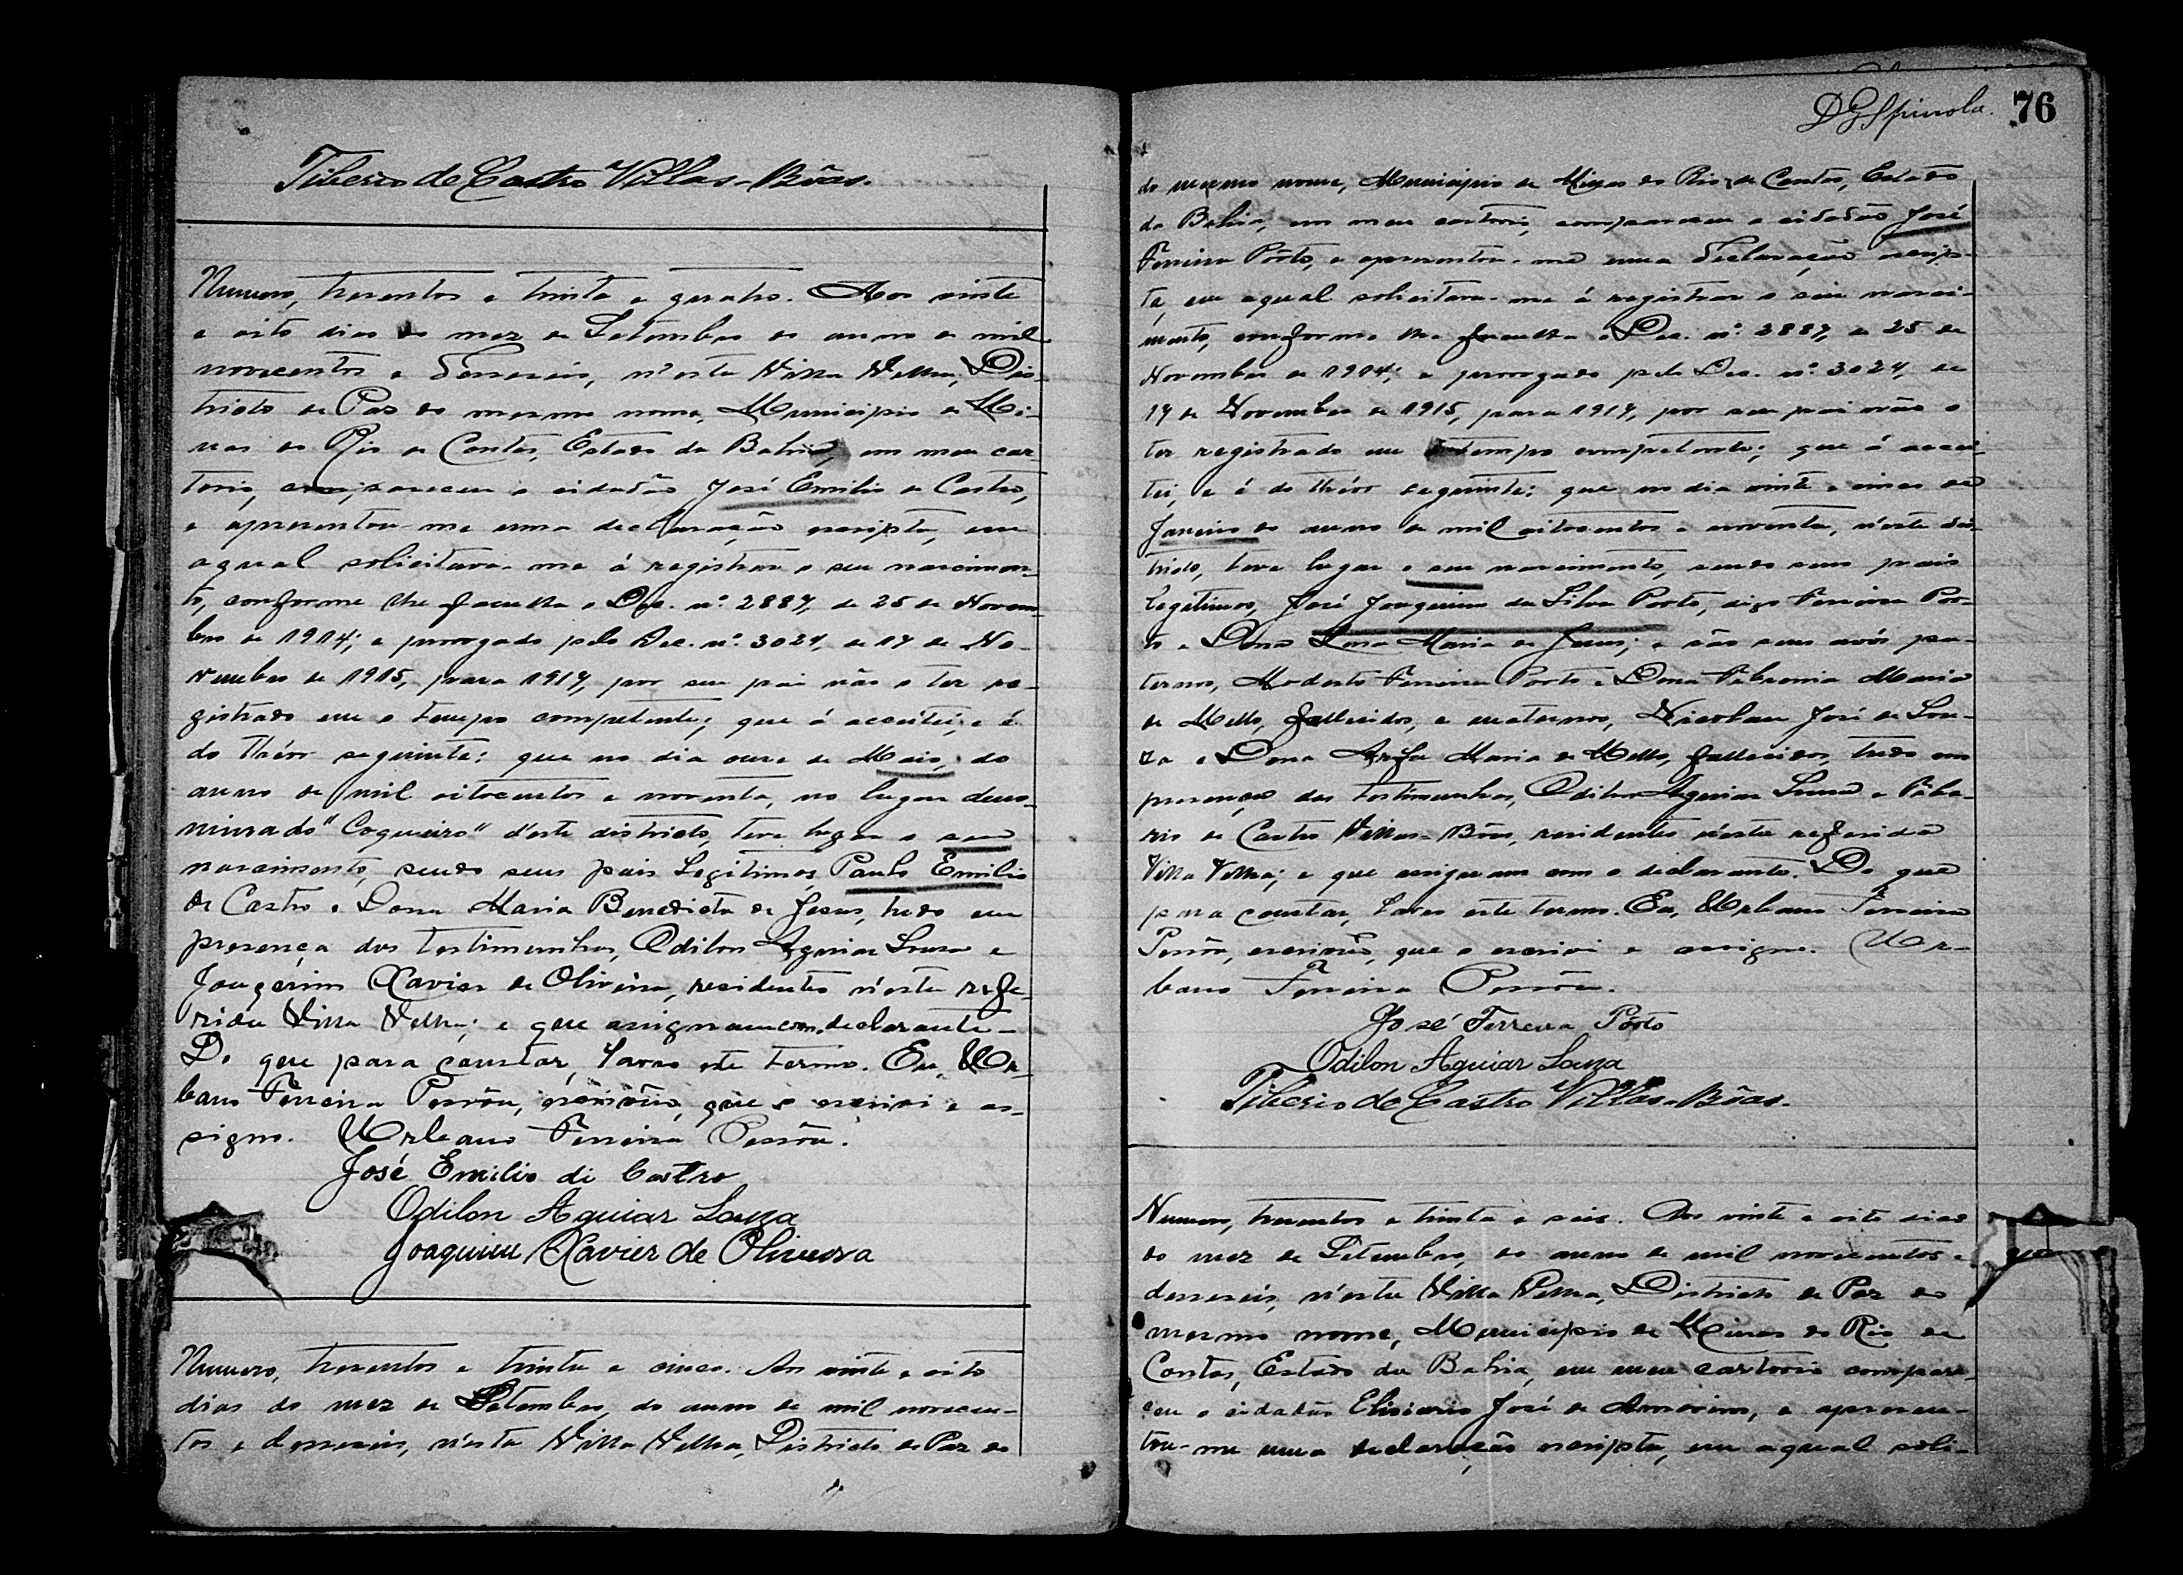 Tiberio de Castro Villas-Bôas.
Numero, tresentos e trinta e quatro. Aos vinte
e oito dias do mez de Setembro do anno de mil
novecentos e desseseis, n'esta Villa Velha, Dis-
tricto de Paz do mesmo nome, Municipio de Mi-
nas do Rio de Contas, Estado da Bahia, em meu car-
torio, compareceu o cidadão José Emilio de Castro,
e apresentou-me uma declaração escripta, em
aqual solicitava-me á registrar o seu nascimen-
to, conforme lhe faculta o Dec. nº. 2887, de 25 de Novem-
bro de 1914; e prorogado pelo Dec. nº. 3024, de 17 de No-
vembro de 1915, para 1917, por seu pai não o ter re-
gistrado em o tempo competente; que á acceitei, e é
do théor seguinte: que no dia onze de Maio, do
anno de mil oitocentos e noventa, no lugar deno-
minado "Coqueiro" d'este districto, teve lugar o seu
nascimento, sendo seus pais Legitimos, Paulo Emilio
de Castro e Dona Maria Benedicta de Jesus, tudo em
presença das testimunhas, Odilon Aguiar Souza e
Joaquim Xavier de Oliveira, residentes n'esta refe-
rida Villa Velha; e que assignam com declarante-
Do que para constar, lavro este termo. Eu, Ur-
bano Ferreira Pessôa, escrivão, que o escrivi e as-
signo. Urbano Ferreira Pessôa.
José Emilio di Castro
Odilon Aguiar Souza
Joaquim Xavier de Oliveira
Numero, tresentos e trinta e cinco. Aos vinte e oito
dias do mez de Setembro, do anno de mil novecen-
tos e desseseis, n'esta Villa Velha, Districto de Paz do
76
do mesmo nome, Municipio de Minas do Rio de Contas, Estado
da Bahia, em meu cartorio, compareceu o cidadão José
Ferreira Pôrto, e apresentou-me uma declaração escrip-
ta, em aqual solicitava-me á registrar o seu nasci-
mento, conforme lhe faculta o Dec. nº. 2887, de 25 de
Novembro de 1914; e prorogado pelo Dec. nº. 3024, de
17 de Novembro de 1915, para 1917, por seu pai não o
ter registrado em tempo competente; que á accei-
tei, e é do théor seguinte: que no dia vinte e cinco de
Janeiro do anno de mil oitocentos e noventa, n'este dis-
tricto, teve lugar o seu nascimento, sendo seus pais
legitimos, José Joaquim da Silva Porto, digo Ferreira Por-
to e Dona Maria de Jesus; e são seus avós pa-
ternos, Modesto Ferreira Porto e Dona Maria
de Mello, fallecidos, e maternos, Nicolau José de Sou-
za e Dona Maria de Mello, fallecidos, tudo em
presença das testimunhas, Odilon Aguiar Souza e Tibe-
rio de Castro Villas-Bôas, residentes n'esta referida
Villa Velha; e que assignam com o declarante. Do que
para constar, lavro este termo. Eu, Urbano Ferreira
Pessôa, escrivão, que o escrivi e assigno. Ur-
bano Ferreira Pessôa.
José Ferreira Pôrto
Odilon Aguiar Souza
Tiberio de Castro Villas-Bôas.
Numero, tresentos e trinta e seis. Aos vinte e oito dias
do mez de Setembro, do anno de mil novecentos e
desseseis, n'esta Villa Velha, Districto de Paz do
mesmo nome, Municipio de Minas do Rio de
Contas, Estado da Bahia, em meu cartorio compare-
ceu o cidadão José de Amorim, e apresen-
tou-me uma declaração escripta, em aqual soli-